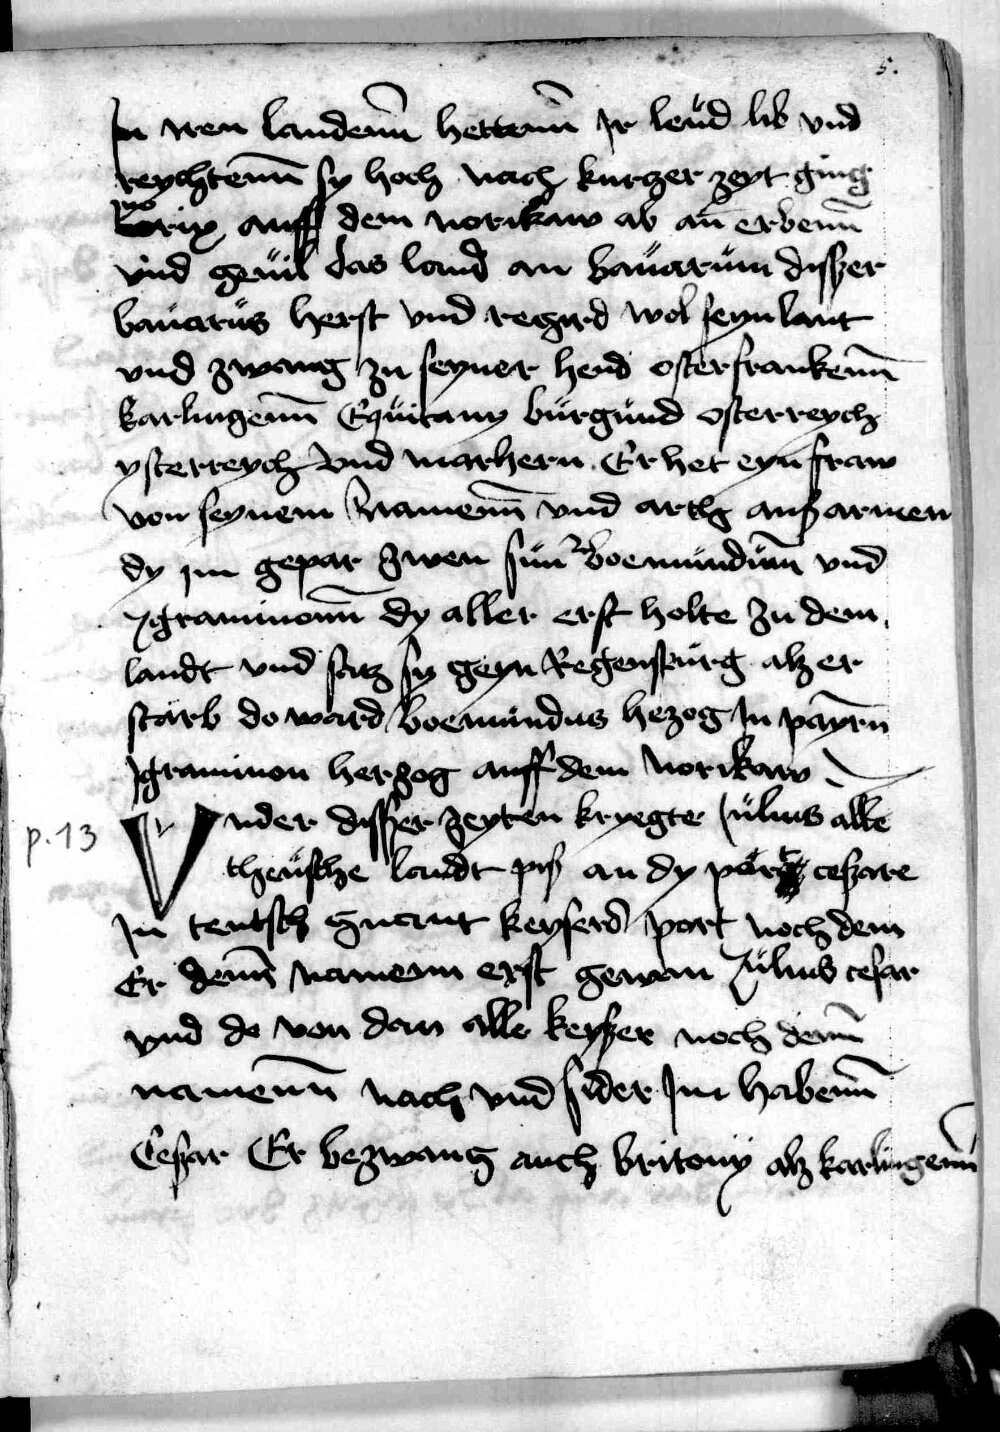 5.
In iren landenn hettenn Ir leüd lib vnd
reychtenn sy hoch nach kurtzer zeyt ging
Norix auff dem norikaw ab an erbenn
vnd geuil das land an bauarum disser
bauarus herst vnd regird wol seyn lant
vnd zwang zu seyner hend osterfrankenn
karlingenn Equitany burgund osterreych
ysterreych vnd marhern Er het eyn fraw
von seynem namenn vnd arth auß armen
dy im gepar zwen sün boemundum vnd
Igraminonn dy aller erst holte zu dem
landt vnd satz sy geyn Regenspurg alz er
starb do ward boemundus hezog In payrn
Igraminon herzog auff dem Norikaw
p. 13
Vnder disser zeyten kryegte Julius alle
theüsche landt piß an dy port cesare
In teutsch gnant keysers port noch dem
Er denn namenn erst gewan Julius cesar
vnd do von dan alle keyser noch denn
namenn nach vnd sider Im habenn
Cesar Er bezwang auch britony alz karlingenn